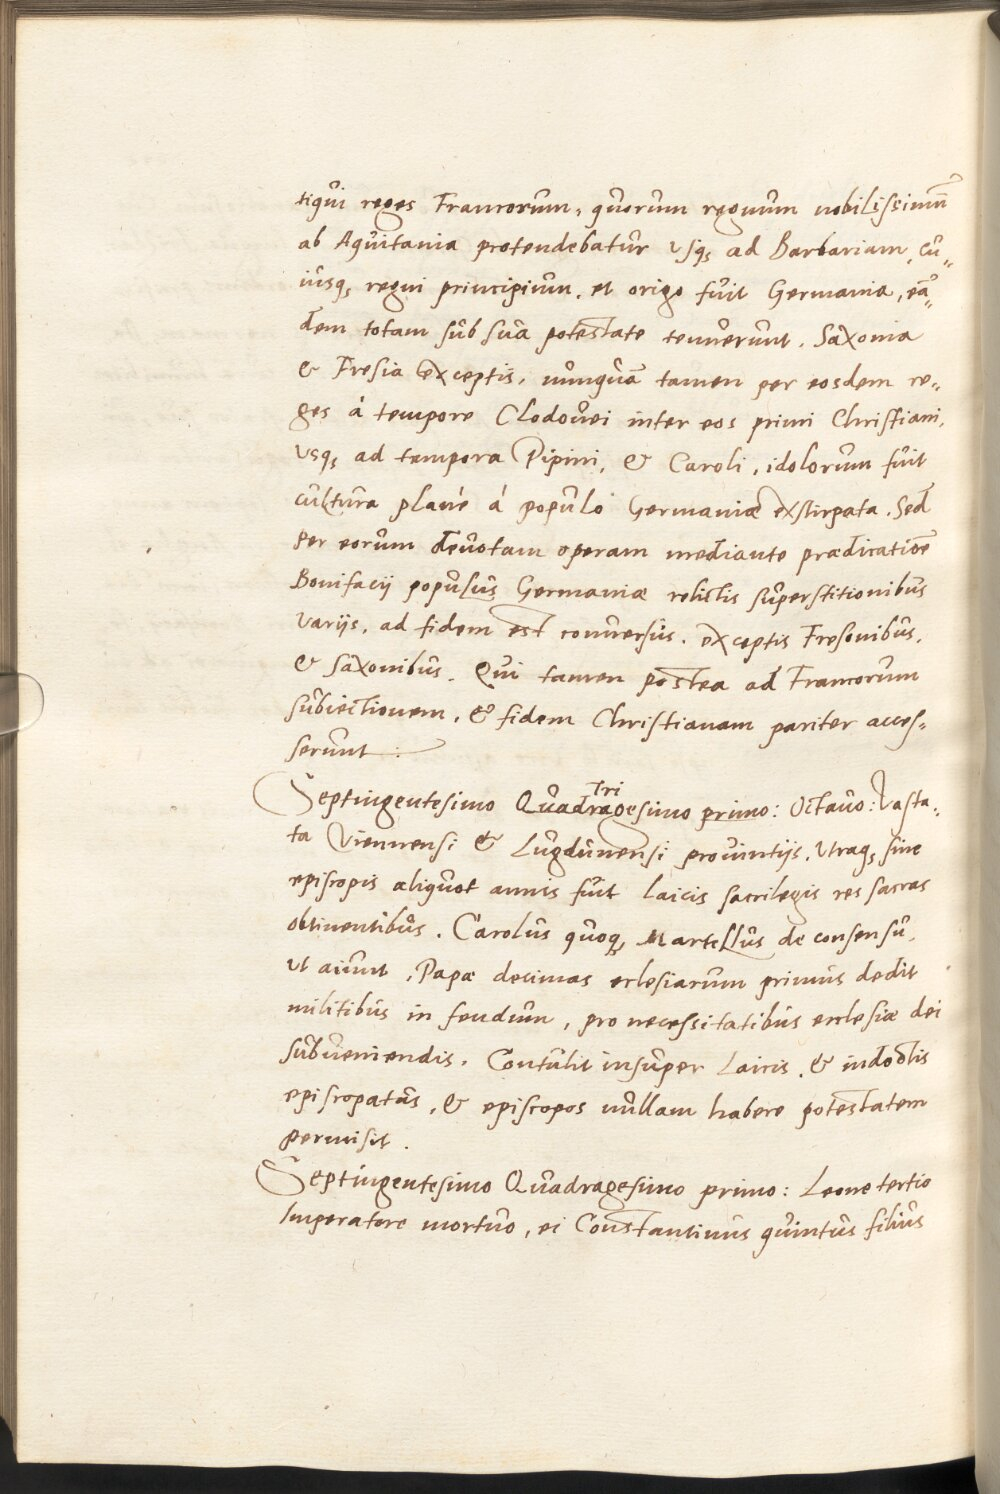 tiqui reges Francorum, quorum regnum nobilissimū
ab Aquitania protendebatur usq; ad Barbariam, cu„
iusq; regni principium, et origo fuit Germania, eā„
dem totam sub sua potestate tenuerunt. Saxonia
& Fresia exceptis, nunquā tamen per eosdem re„
ges á tempore Clodouei inter eos primi Christiani,
usq; ad tempora Pipini, & Caroli, idolorum fuit
cultura plané á populo Germaniæ exstirpata. Sed
per eorum deuotam operam mediante prædicatiōe
Bonifacij populus Germaniæ relictis superstitionibus
varijs, ad fidem est conuersus. exceptis Fresonibus,
& Saxonibus. Qui tamen postea ad Francorum
subiectionem, & fidem Christianam pariter acces„
serunt.
tri
Septingentesimo Quadragesimo primo: Octauo: Vasta„
ta Viennensi & Lugdunensi prouintijs, Utraq; sine
episcopis aliquot annis fuit laicis sacrilegis res sacras
obtinentibus. Carolus quoq; Martellus de consensu,
ut aiunt, Papæ decimas eclesiarum primus dedit
militibus in feudum, pro necessitatibus ecclesiæ dei
subueniendis. Contulit insuper Laicis, & indoctis
episcopatus, & episcopos nullam habere potestatem
permisit.
Septingentesimo Quadragesimo primo: Leone tertio
Imperatore mortuo, ei Constantinus quintus filius